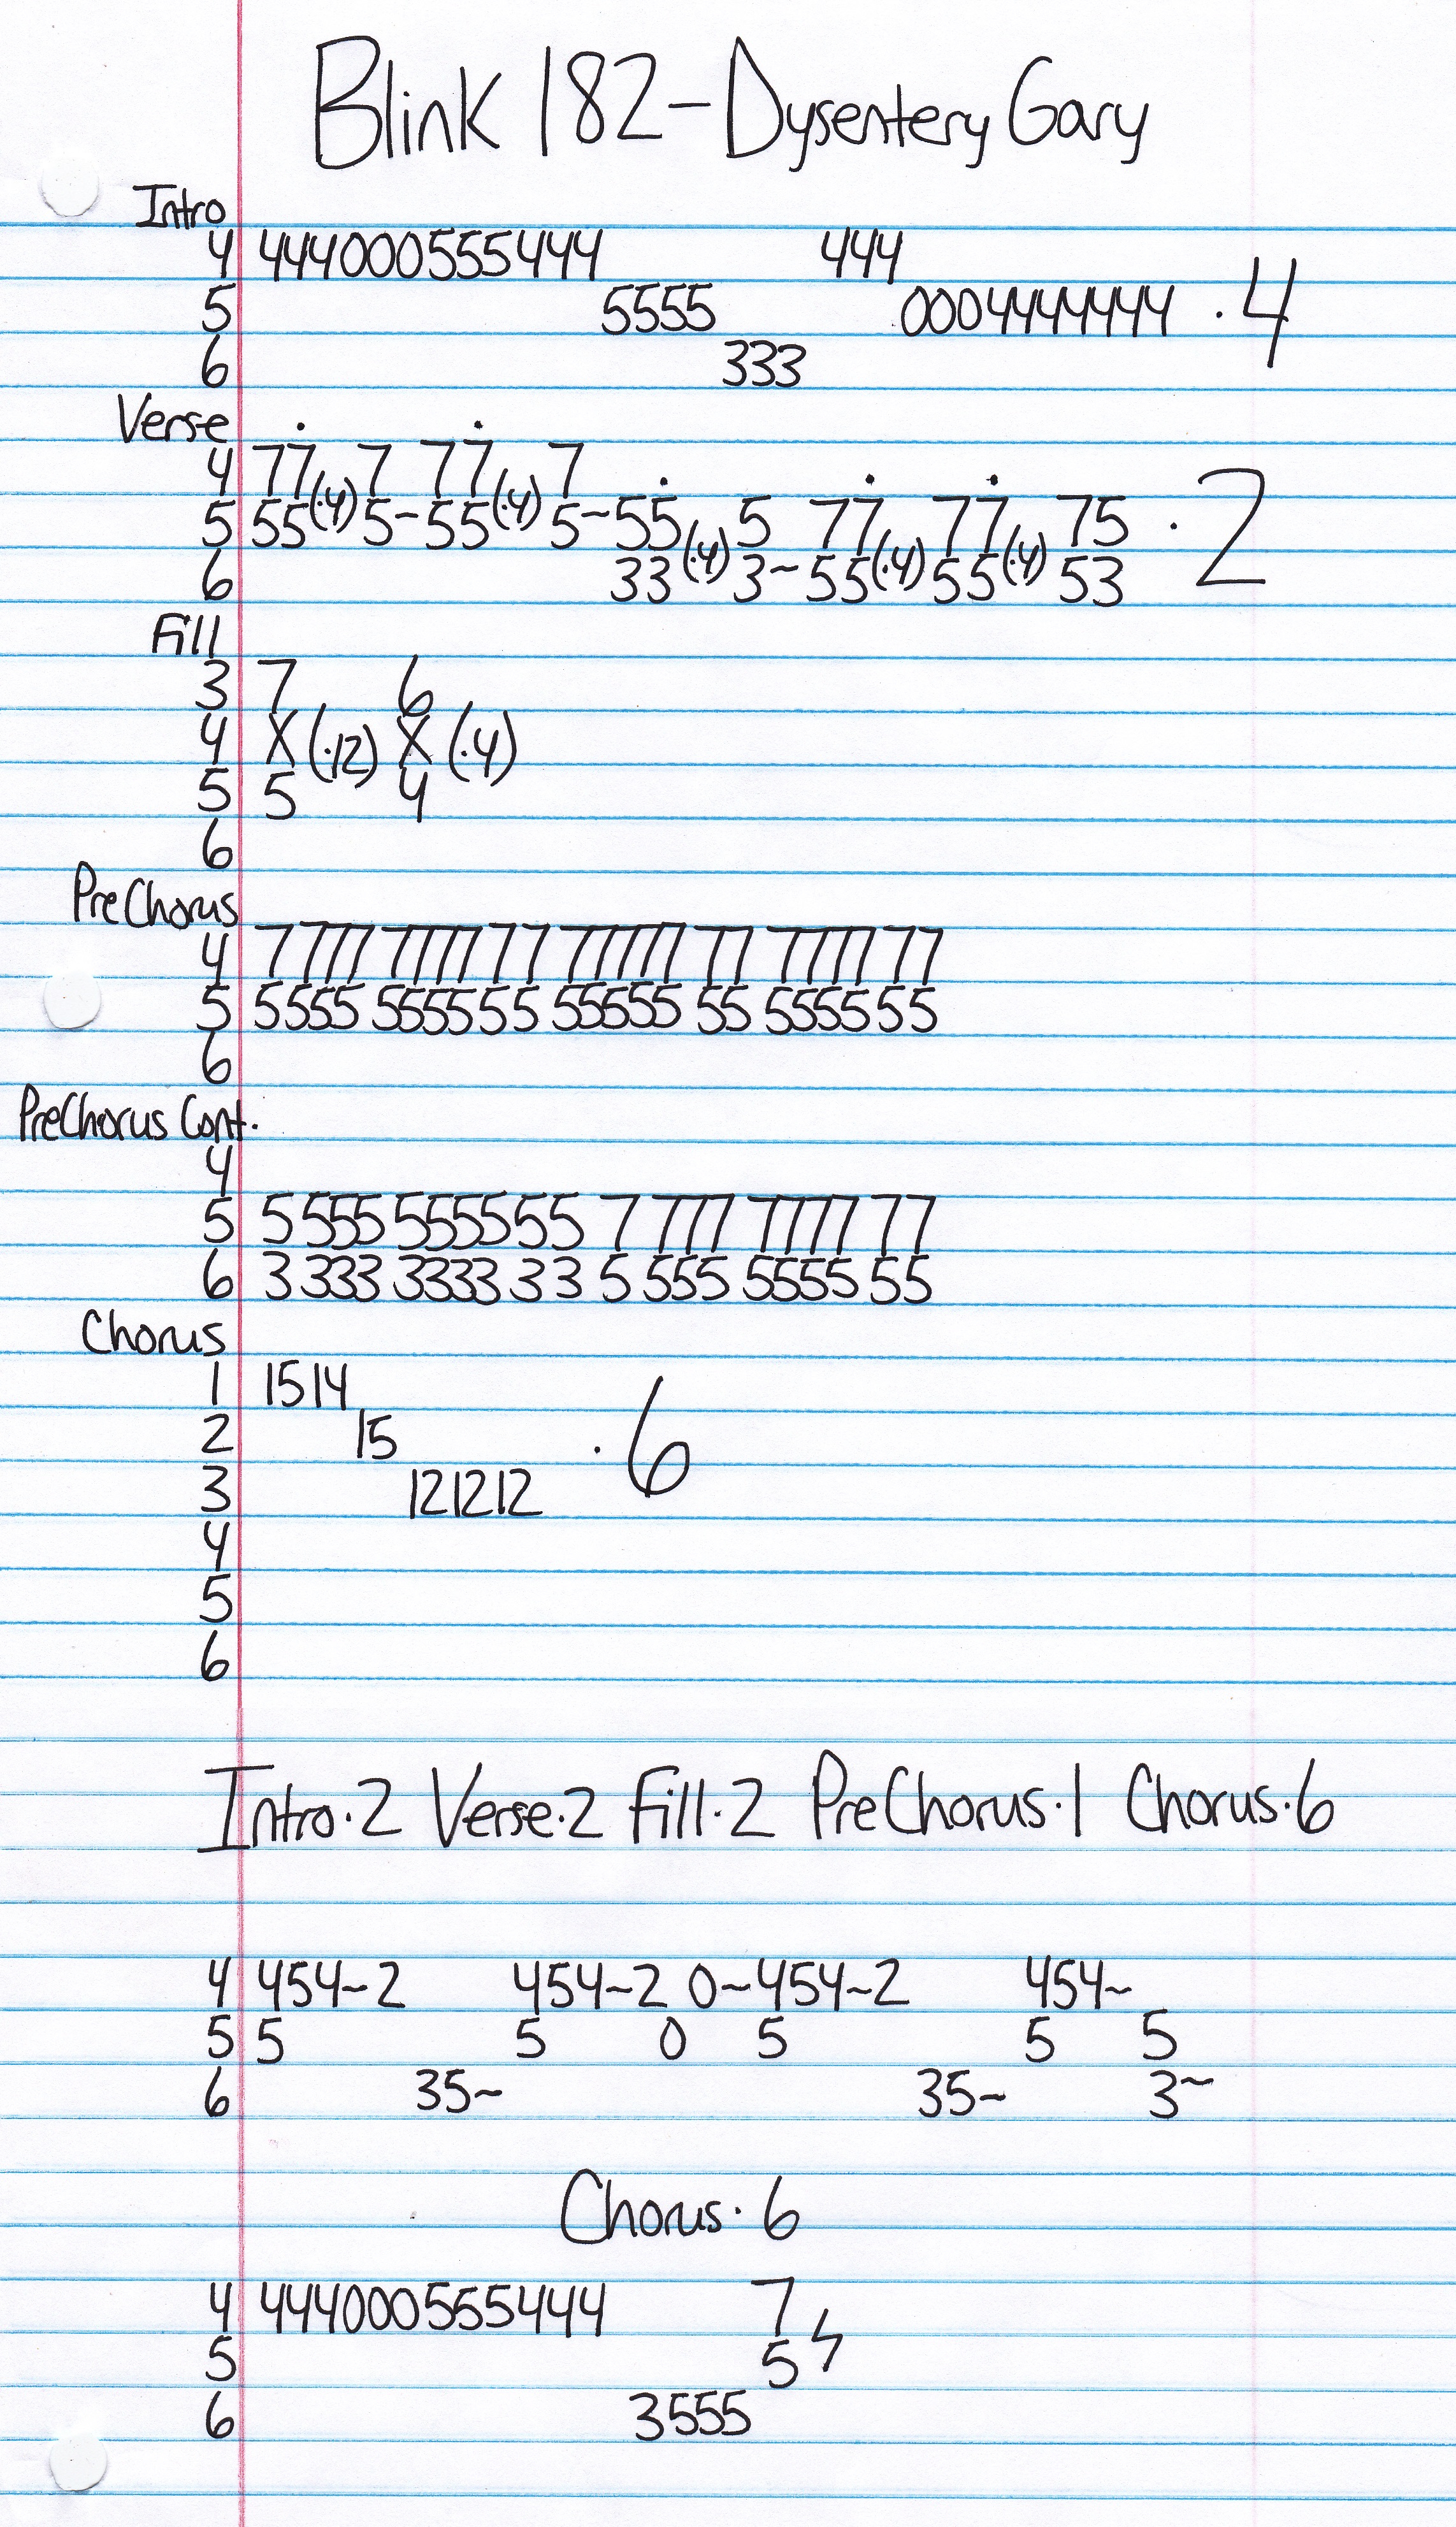 Blink 182-Dysentery Gary
Intro
4 444000555444 444
5 5555 0004444444 ·4
6 333
Verse
4 77(·4)7 77(·4)7
5 55 5~55 5~55(·4)5 77(·4)77(·4)75 ·2
6 33 3~55 55 53
Fill
3 7 6
4 X(·12) X(·4)
5 5 4
6
PreChorus
4 7777 777777 77777 77 7777 77
5 5555 555555 55555 55 5555 55
6
PreChorus Cont.
4
5 5 555 5555 55 7 777 7777 77
6 3 333 3333 33 5 555 5555 55
Chorus
1 1514
2 15 ·6
3 121212
4
5
6
Intro·2 Verse·2 Fill·2 PreChorus·1 Chorus·6
4 454~2 454~2 0~454~2 454~
5 5 5 0 5 5 5
6 35~ 35~ 3~
Chorus·6
4 444000555444 7
5 5
6 3555